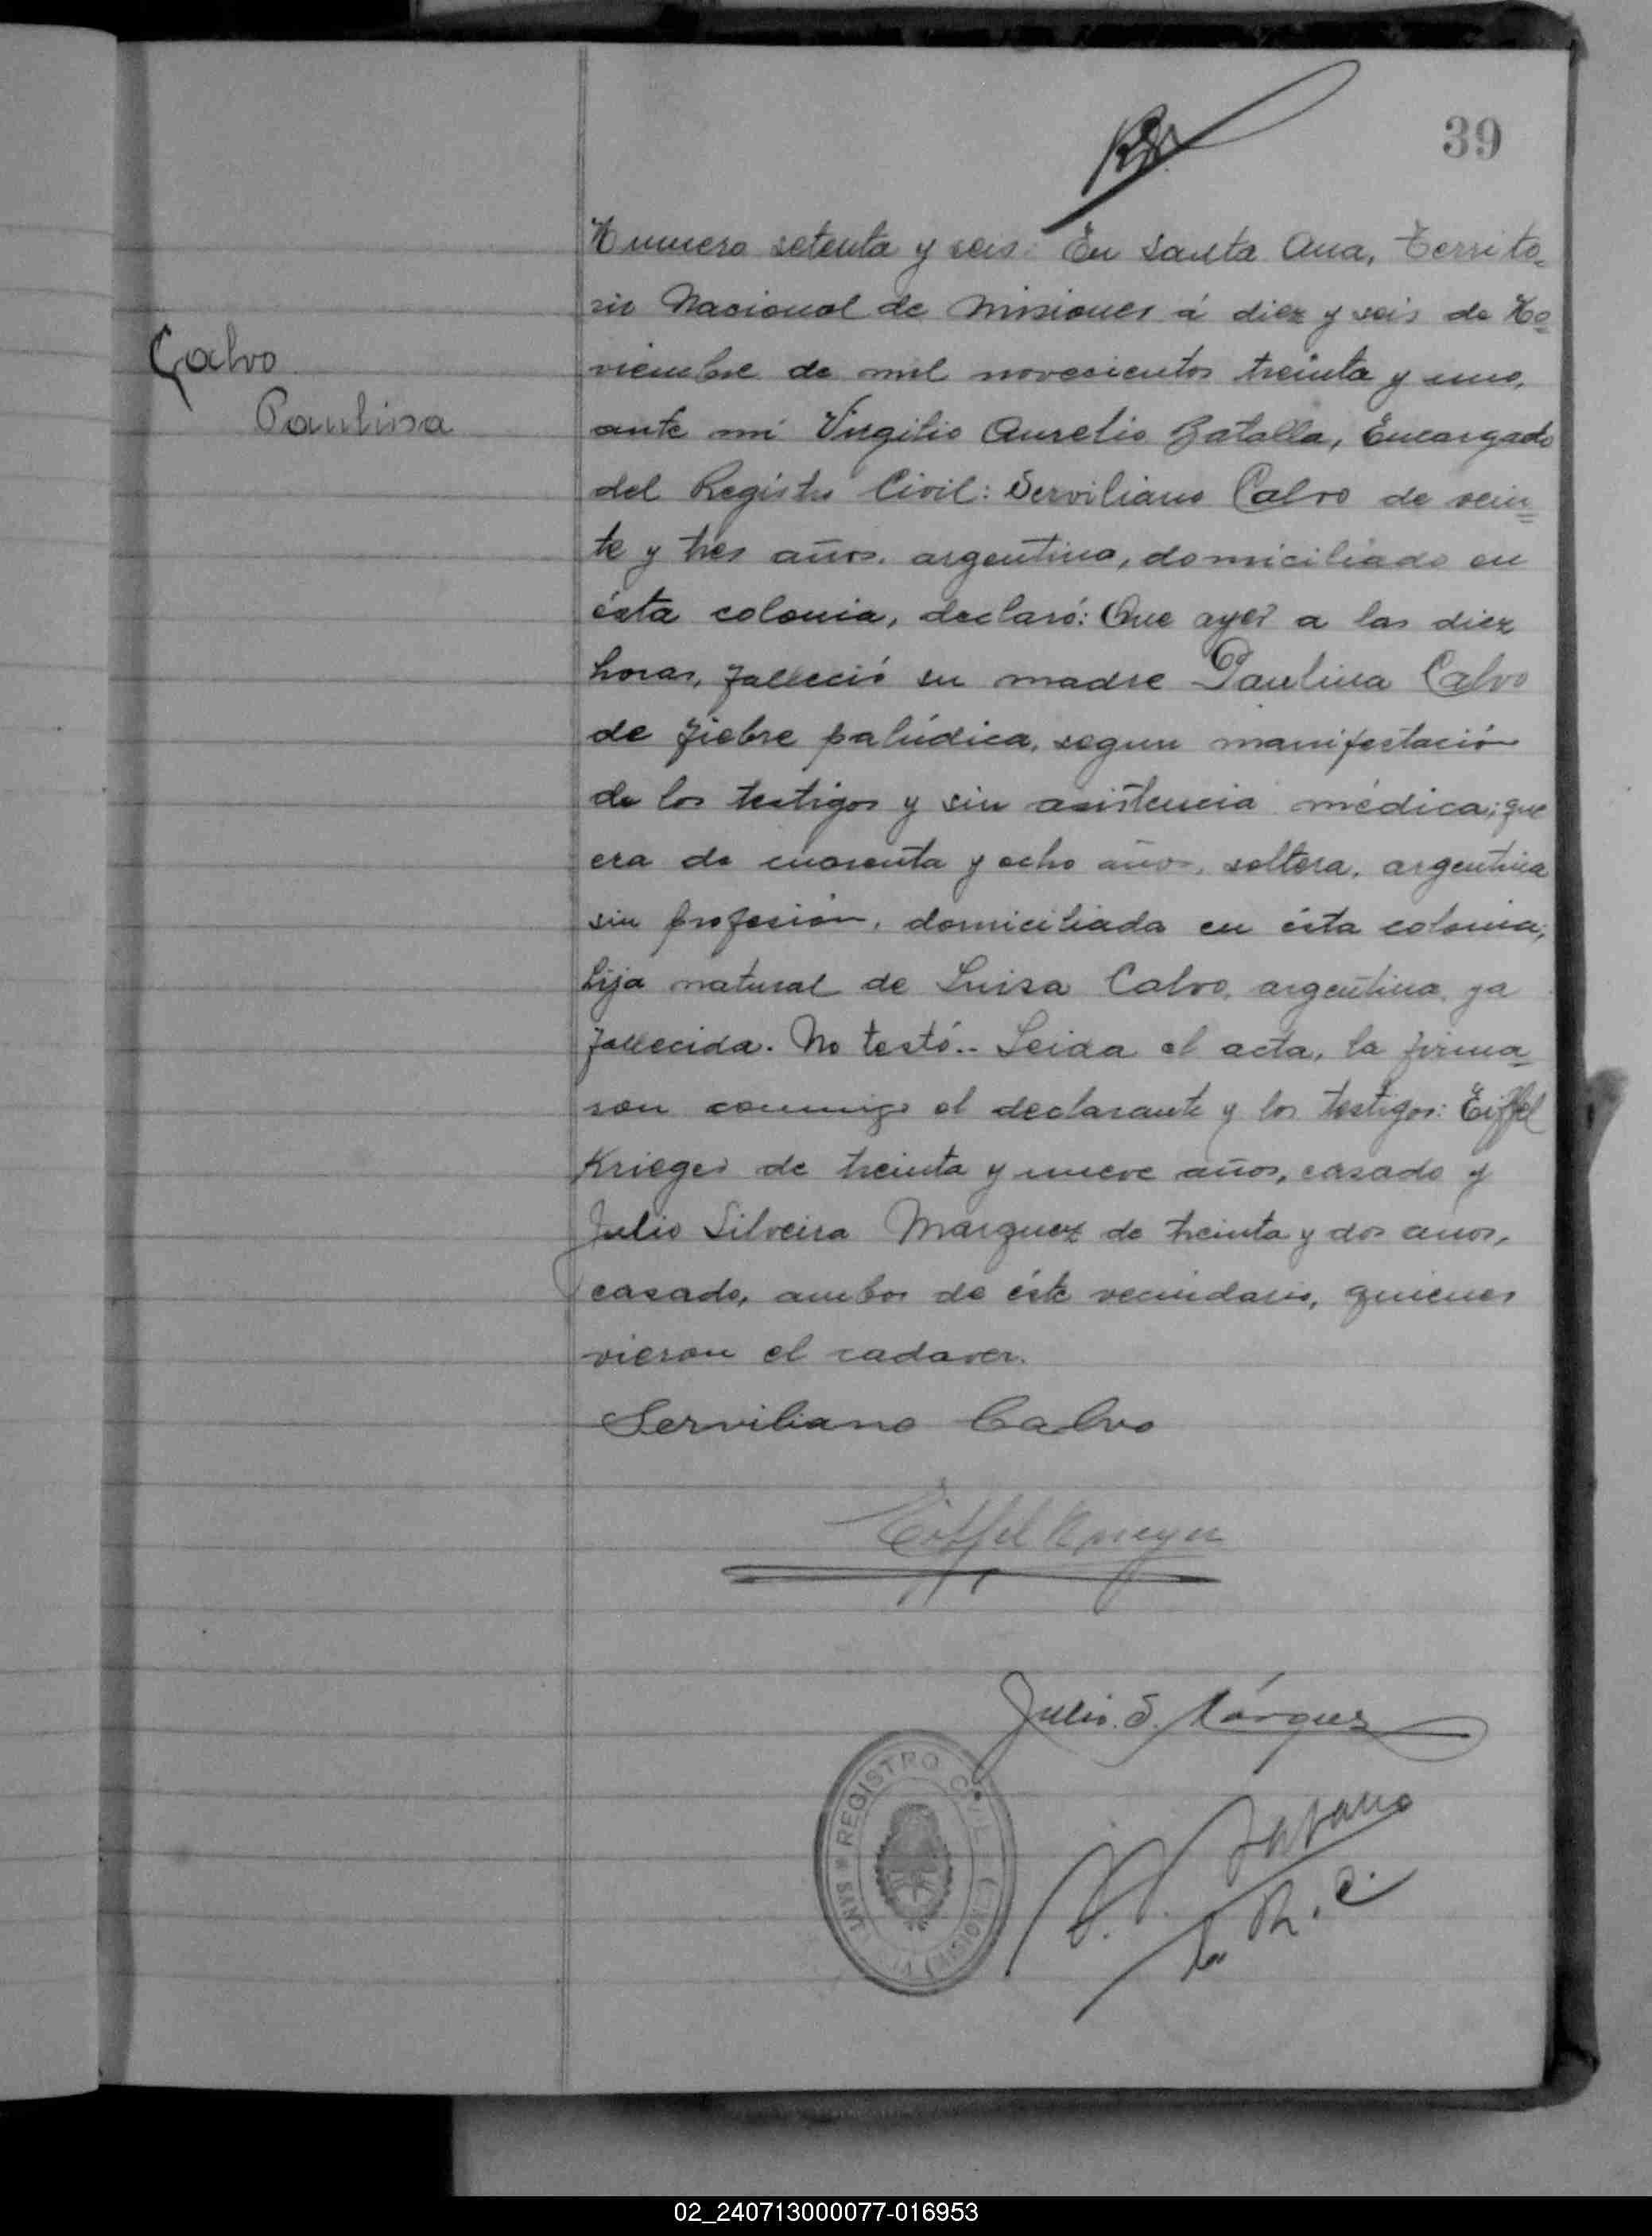 39
Numero setenta y seis: En Santa Ana, Territo=
rio Nacional de Misiones á diez y seis de No=
viembre de mil novecientos treinta y uno,
Calvo
Paulina
ante mí Virgilio Aurelio Batalla, Encargado
del Registro Civil: Serviliano Calvo de vein=
te y tres años, argentino, domiciliado en
ésta colonia, declaró: Que ayer a las diez
horas, falleció su madre Paulina Calvo
de fiebre palúdica, segun manifestación
de los testigos y sin asistencia médica; que
era de cuarenta y ocho años, soltera, argentina
sin profesión, domiciliada en ésta colonia;
hija natural de Luisa Calvo, argentina, ya
fallecida. No testó.- Leida el acta, la firma=
ron conmigo el declarante y los testigos: Eiffel
Krieger de treinta y nueve años, casado y
Julio Silveira Marquez de treinta y dos anos,
casado, ambos de éste vecindario, quienes
vieron el cadaver.
Serviliano Calvo
Eiffel Krieger
Julio S. Márquez
REGISTRO CIVIL
SANTA (MISIONES)
R. C.
02_240713000077-016953